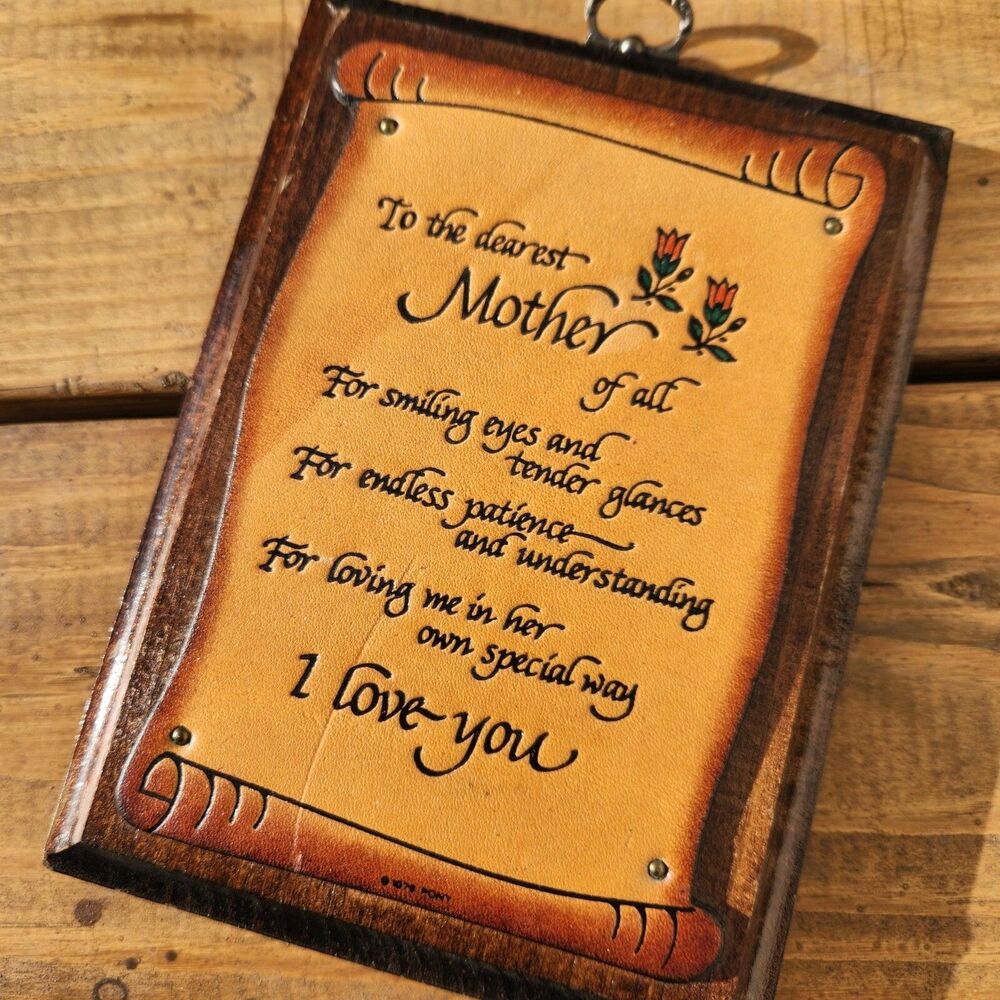 To the dearest
Mother
of all
For smiling eyes and
tender glances
For endless patience
and understanding
For loving me in her
own special way
I love you
© 1978 PONY